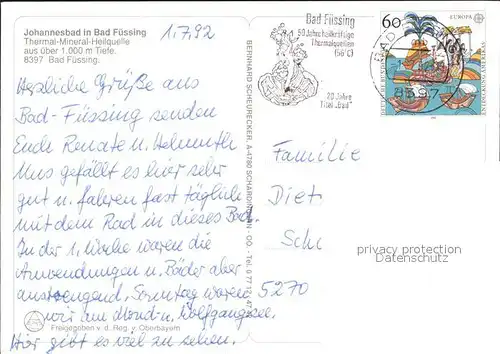 Johannesbad in Bad Füssing
Thermal-Mineral-Heilquelle
aus über 1.000 m Tiefe.
8397 Bad Füssing.
1.7.92
Herzliche Grüße aus
Bad-Füssing senden
Euch Renate u. Helmuth
Uns gefällt es hier sehr
gut u. fahren fast täglich
mit dem Rad in dieses Bad.
In der 1. Woche waren die
Anwendungen u. Bäder aber
anstrengend, Sonntag waren
wir am Mond- u. Wolfgangsee.
Freigegeben v. d. Reg. v. Oberbayern
Hier gibt es viel zu sehen.
BERNHARD SCHEURECKER, A-4780 SCHÄRDING
Bad Füssing
50 Jahre heilkräftige
Thermalquellen
(56°C)
20 Jahre
Titel „Bad“
60
EUROPA
BAD
8397
Familie
Diet
Sch
5270
privacy protection
Datenschutz